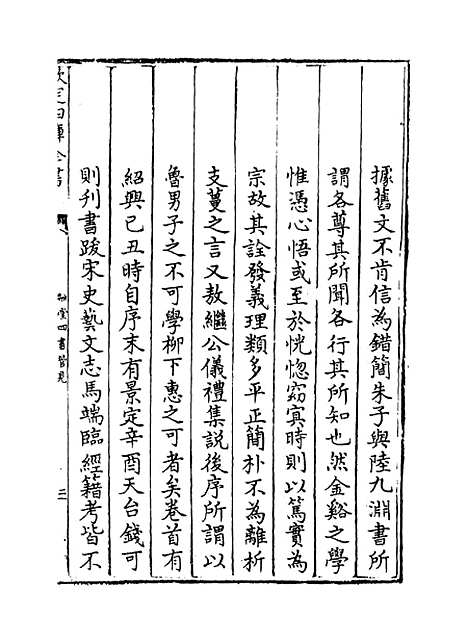 據舊文不肯信為錯簡朱子與陸九淵書所
謂各尊其所聞各行其所知也然金谿之學
惟憑心悟或至於恍惚窈冥時則以篤實為
宗故其詮發義理類多平正簡朴不為離析
支蔓之言又敖繼公儀禮集說後序所謂以
魯男子之不可學柳下惠之可者矣卷首有
紹興己丑時自序末有景定辛酉天台錢可
則刊書跋宋史藝文志馬端臨經籍考皆不
欽定四庫全書
融堂四書管見
三